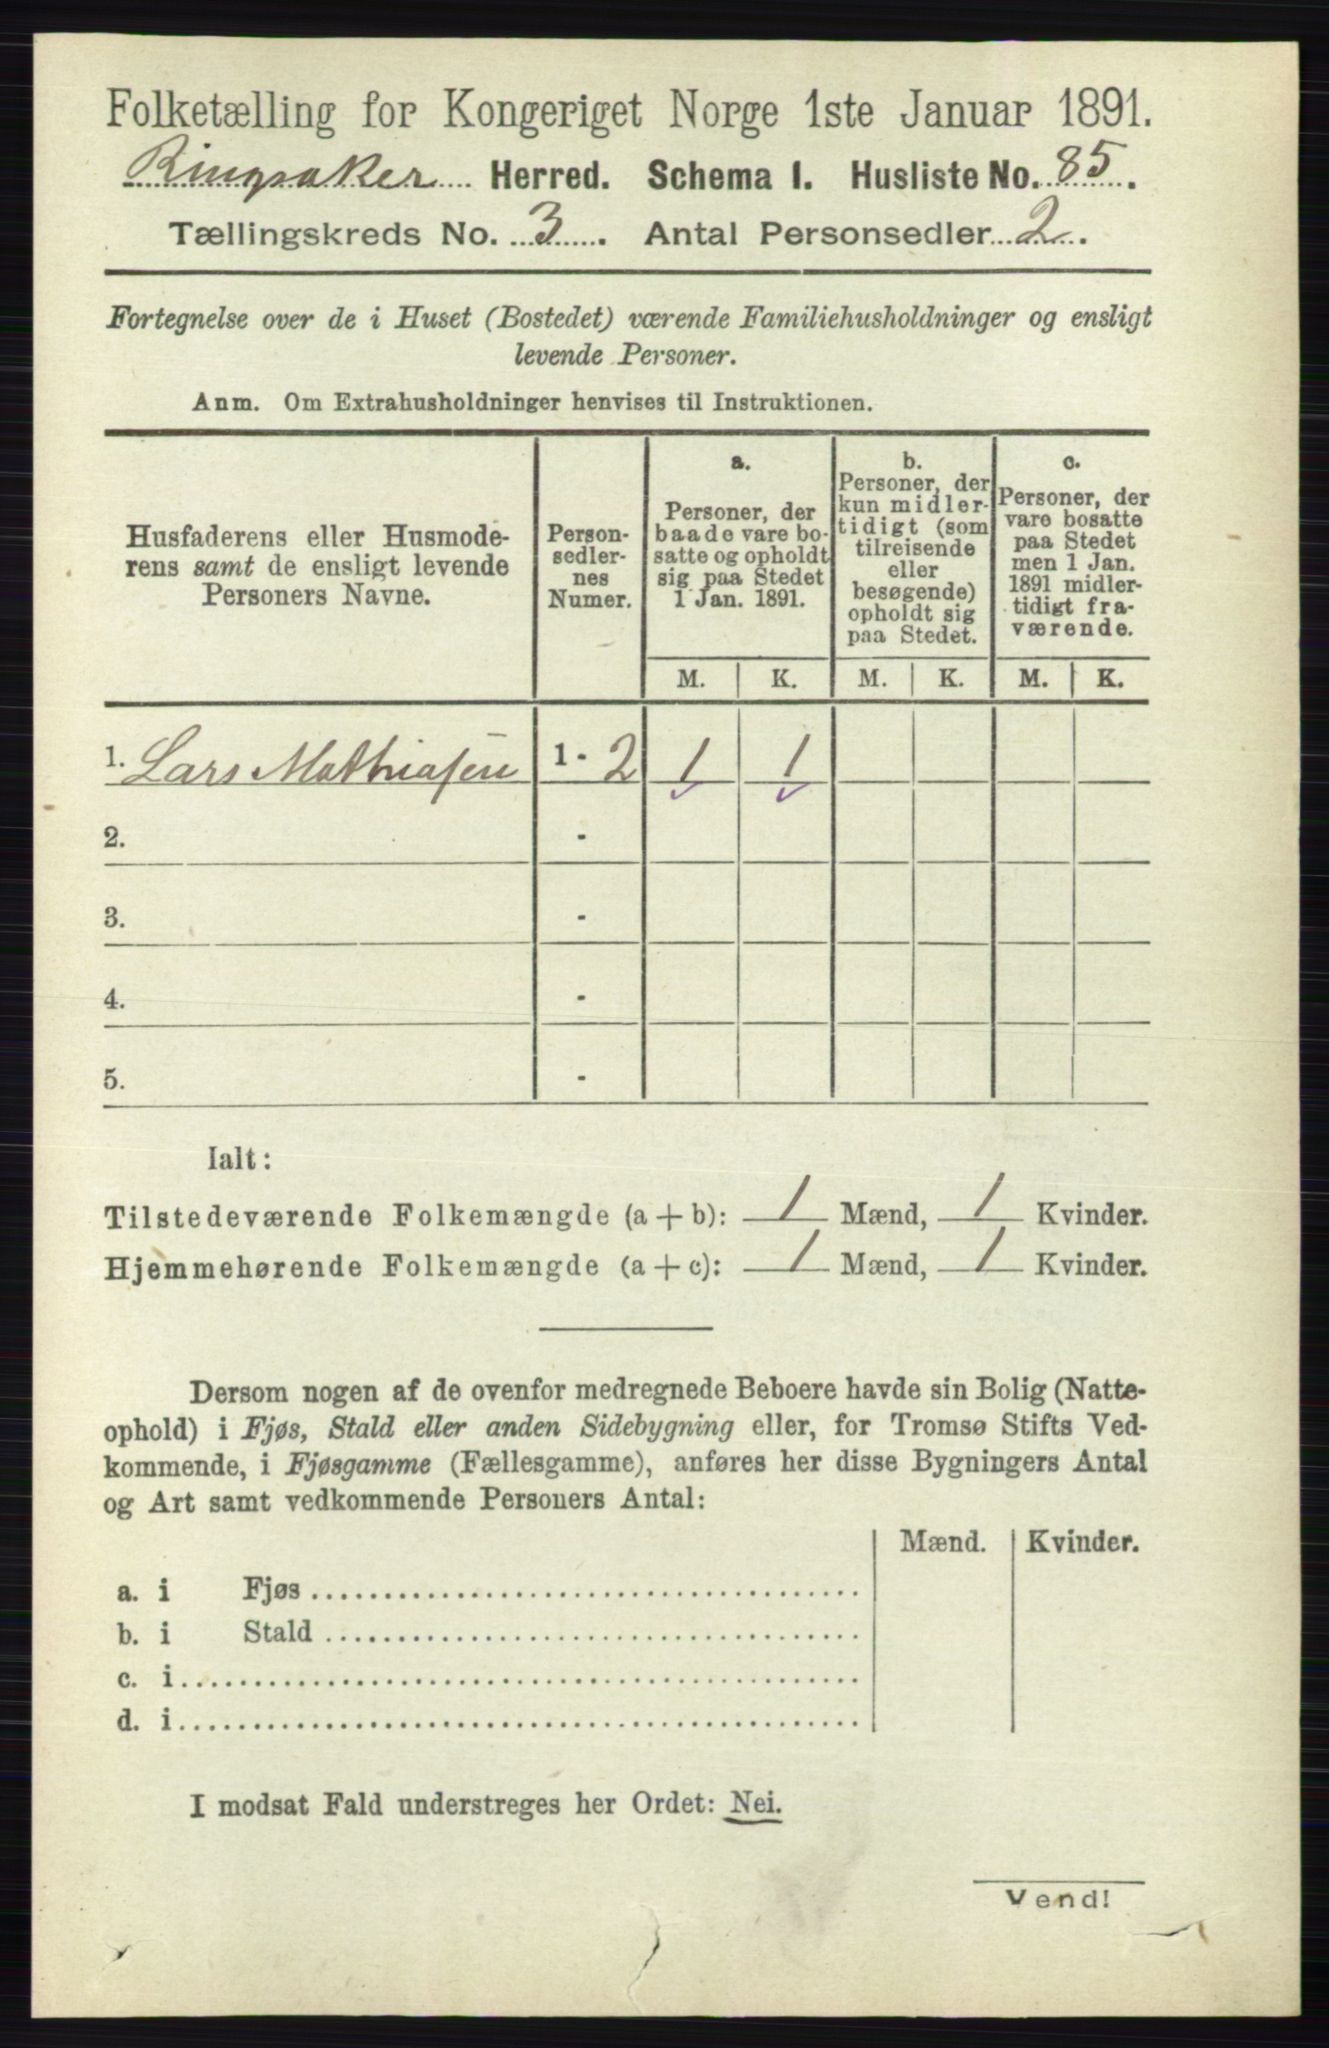 Folketælling for Kongeriget Norge 1ste Januar 1891.
Ringsaker Herred. Schema I. Husliste No. 85.
Tællingskreds No. 3. Antal Personsedler 2.
Fortegnelse over de i Huset (Bostedet) værende Familiehusholdninger og ensligt
levende Personer.
Anm. Om Extrahusholdninger henvises til Instruktionen.
Husfaderens eller Husmode-
rens samt de ensligt levende
Personers Navne.
Person-
sedler-
nes
Numer.
a.
Personer, der
baade vare bo-
satte og opholdt
sig paa Stedet
1 Jan. 1891.
b.
Personer, der
kun midler-
tidigt (som
tilreisende
eller
besøgende)
opholdt sig
paa Stedet.
c.
Personer, der
vare bosatte
paa Stedet
men 1 Jan.
1891 midler-
tidigt fra-
værende.
M. K. M. K. M. K.
1. Lars Mathiasen 1 - 2 1 1
2. -
3. -
4. -
5. -
Ialt:
Tilstedeværende Folkemængde (a + b): 1 Mænd, 1 Kvinder.
Hjemmehørende Folkemængde (a + c): 1 Mænd, 1 Kvinder.
Dersom nogen af de ovenfor medregnede Beboere havde sin Bolig (Natte-
ophold) i Fjøs, Stald eller anden Sidebygning eller, for Tromsø Stifts Ved-
kommende, i Fjøsgamme (Fællesgamme), anføres her disse Bygningers Antal
og Art samt vedkommende Personers Antal:
Mænd. Kvinder.
a. i Fjøs
b. i Stald
c. i
d. i
I modsat Fald understreges her Ordet: Nei.
Vend!